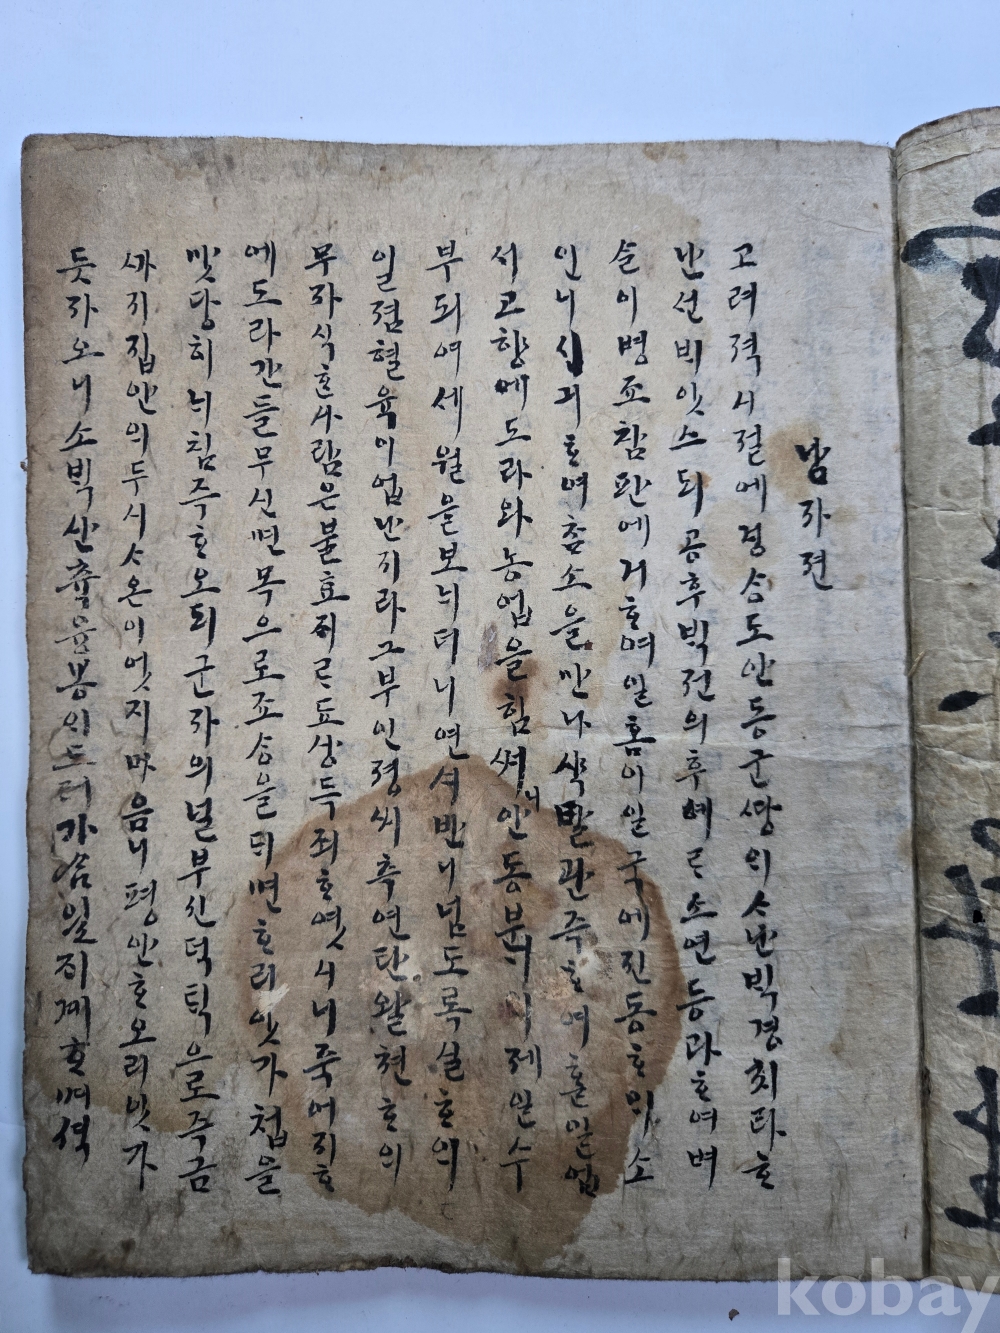 낭자젼
고려젹시졀에경상도안동군땅의사난빅경치라ᄒᆞ
난션비잇스되공후빅젼의후예르소연등과ᄒᆞ여벼
살이병죠참판에거ᄒᆞ여일홈이일국에진동ᄒᆞ미소
인니시긔ᄒᆞ여참소을만나삭탈관죽ᄒᆞ여흘일업
서고향에도라와농업을힘쎠니안동분니제일수
부되여세월을보니더니연셔반니넘도록실ᄒᆞ의
일졈혈육이업난지라그부인졍씨츅연탄왈쳔ᄒᆞ의
무자식ᄒᆞᆫ사람은불효지르됴상득죄ᄒᆞ엿시니죽어지ᄒᆞ
에도라간들무신면목으로죠상을되면ᄒᆞ리잇가쳡을
맛당히니침즉ᄒᆞ오되군자의널부신덕틱으로즉금
까지집안의두시사온이엇지마음니평안ᄒᆞ오리잇가
듯자오니소빅산쥬육봉의드러가삼일지계ᄒᆞ며셕